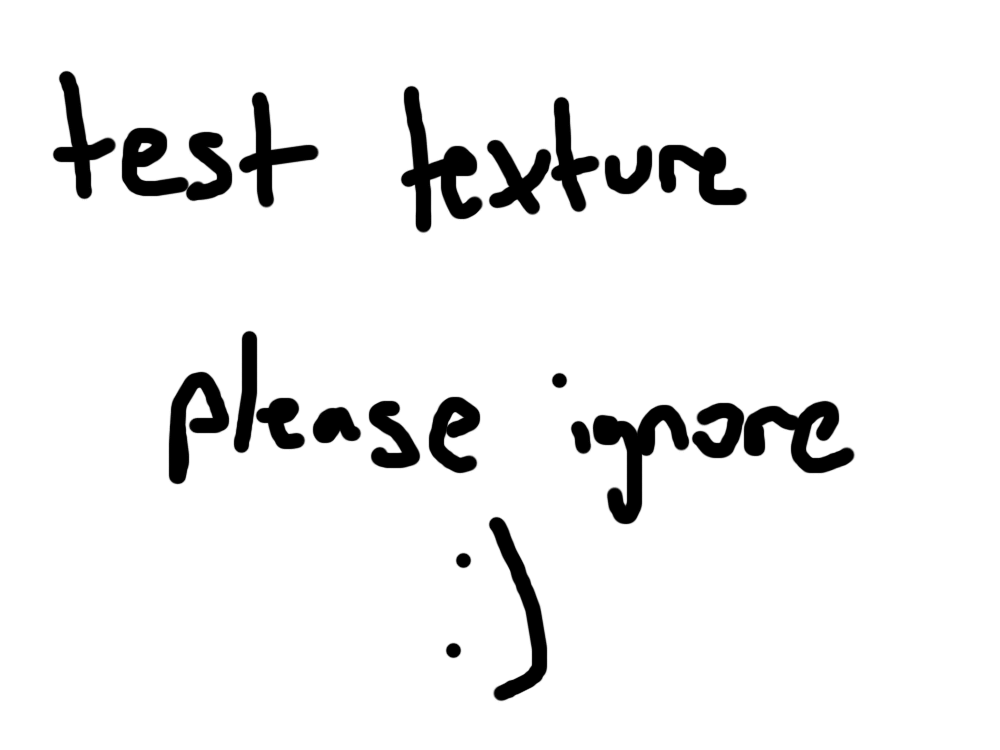 test texture
please ignore
:)